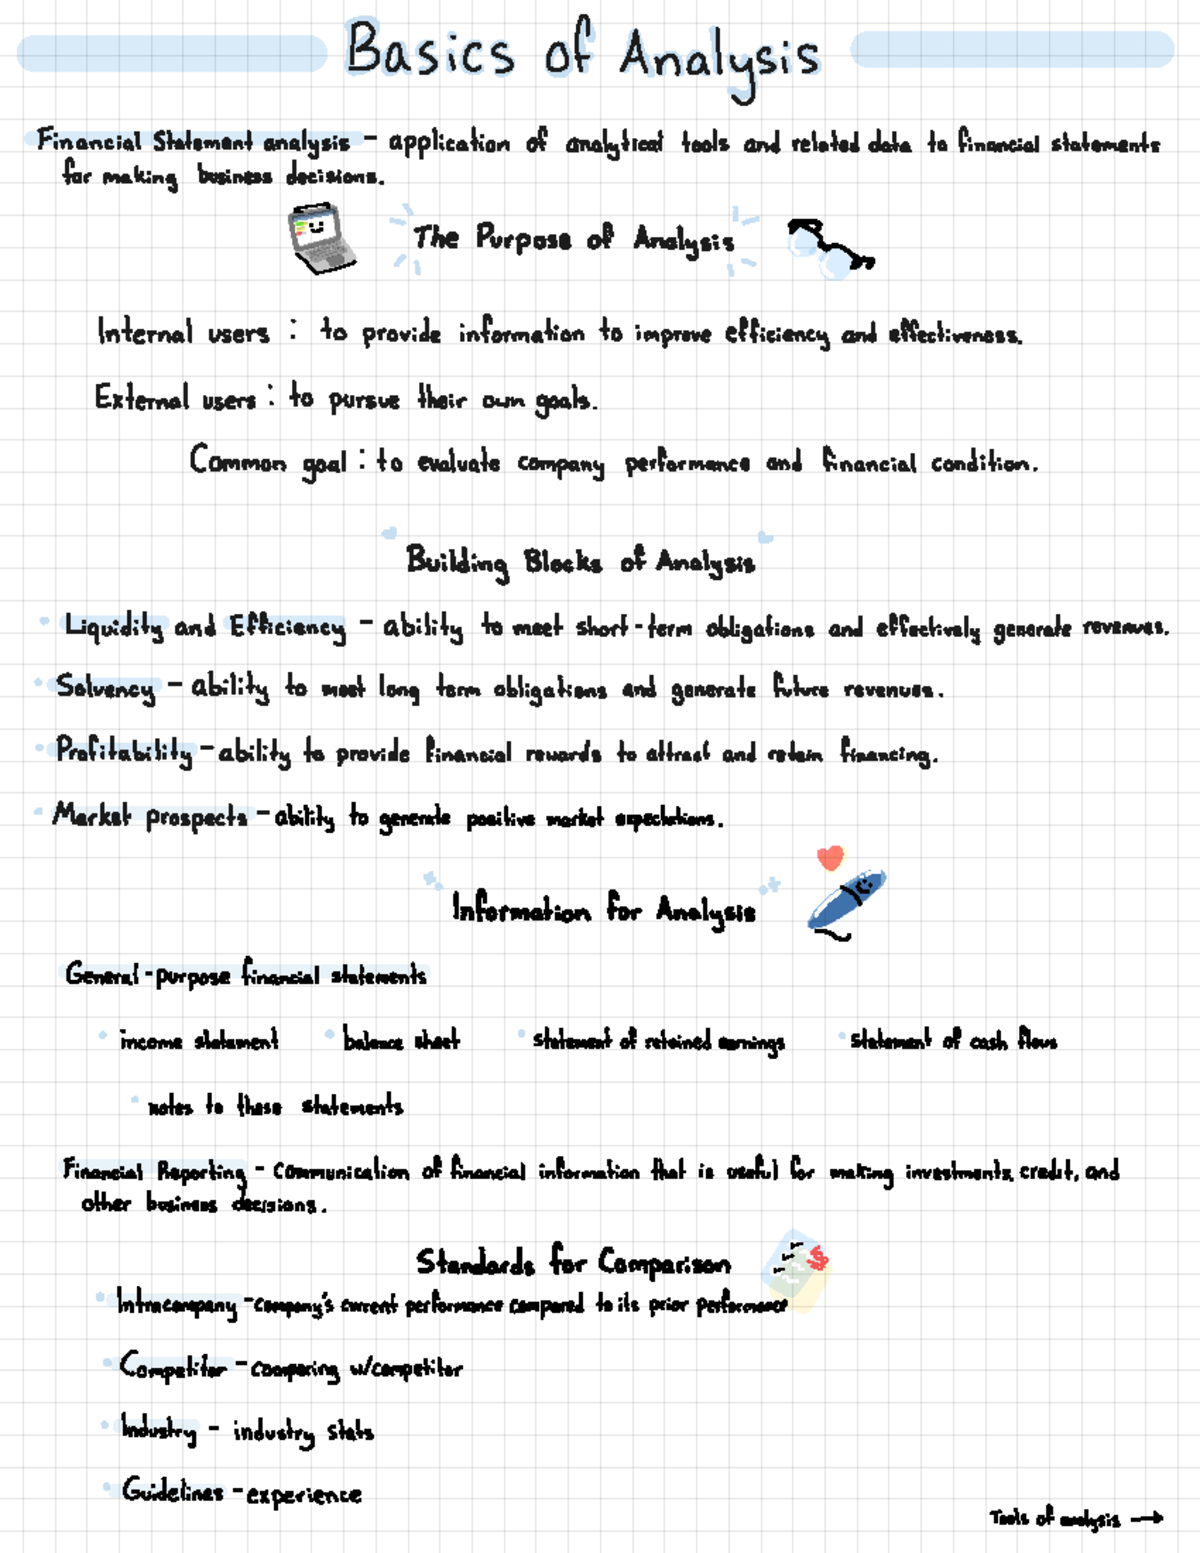 Basics of Analysis
Financial Statement analysis - application of analytical tools and related data to financial statements
for making business decisions.
The Purpose of Analysis
Internal users : to provide information to improve efficiency and effectiveness.
External users : to pursue their own goals.
Common goal : to evaluate company performance and financial condition.
Building Blocks of Analysis
• Liquidity and Efficiency - ability to meet short-term obligations and effectively generate revenues.
• Solvency - ability to meet long term obligations and generate future revenues.
• Profitability - ability to provide financial rewards to attract and retain financing.
• Market prospects - ability to generate positive market expectations.
Information for Analysis
General-purpose financial statements
• income statement • balance sheet • statement of retained earnings • statement of cash flows
• notes to these statements
Financial Reporting - communication of financial information that is useful for making investments, credit, and
other business decisions.
Standards for Comparison
• Intracompany - company's current performance compared to its prior performance
• Competitor - comparing w/competitor
• Industry - industry stats
• Guidelines - experience
Tools of analysis →